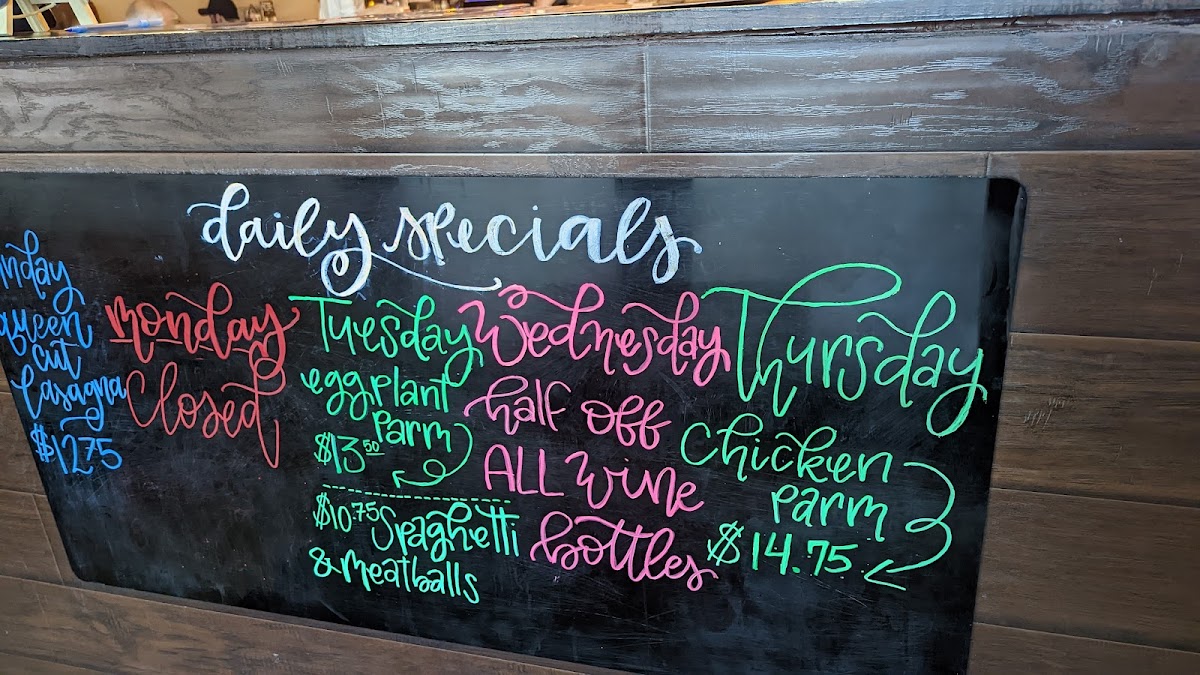 daily specials
nday
queen
cut
lasagna
$12.75
monday
Closed
Tuesday
eggplant
parm
$13.50
$10.75 Spaghetti
& meatballs
Wednesday
half off
ALL wine
bottles
Thursday
Chicken
parm
$14.75